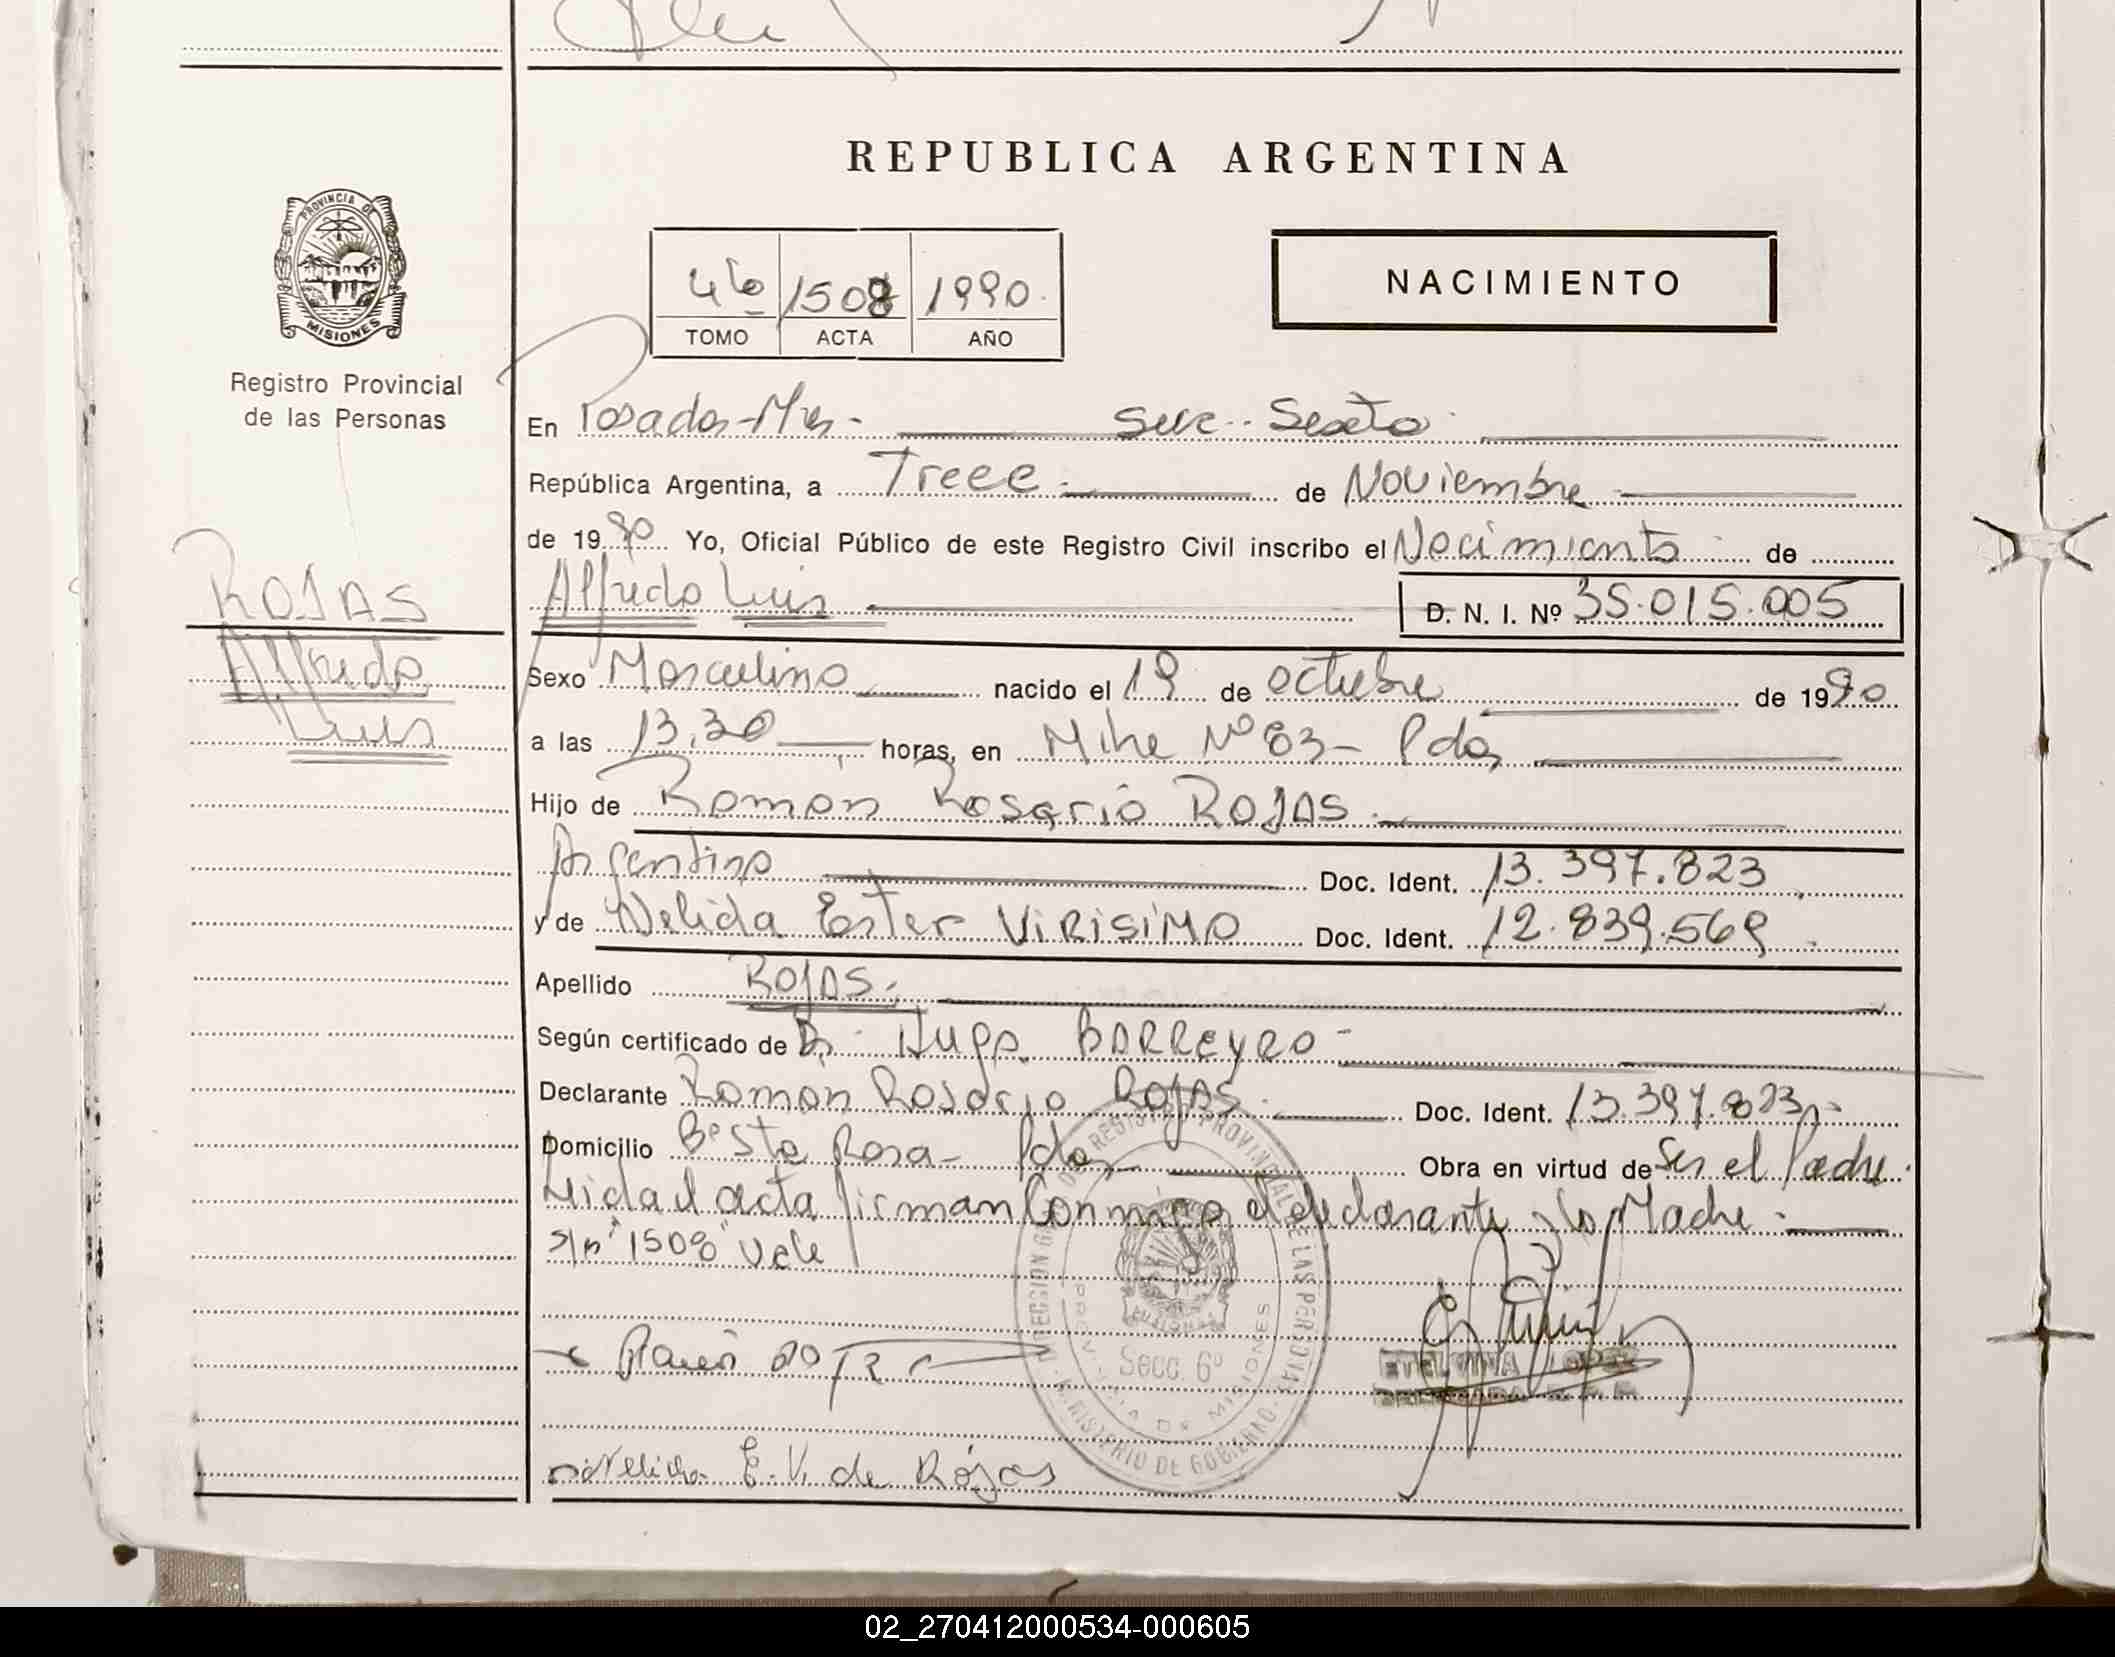 REPUBLICA ARGENTINA
PROVINCIA DE
MISIONES
Registro Provincial
de las Personas
4to 1508 1990.
TOMO ACTA AÑO
NACIMIENTO
En Posadas-Mnes- Secc.. Sexta
República Argentina, a Trece - de Noviembre
de 1990 Yo, Oficial Público de este Registro Civil inscribo el Nacimiento de
Alfredo Luis
D. N. I. Nº 35.015.005
ROJAS
Alfredo
Luis
Sexo Masculino nacido el 19 de octubre de 1990
a las 13,30 horas, en Mthe Nº 83- Pdas
Hijo de Ramón Rosario ROJAS.
Argentino Doc. Ident. 13.397.823
y de Nelida Ester VIRISIMO Doc. Ident. 12.839.569
Apellido ROJAS.
Según certificado de Dr. Hugo BARREYRO-
Declarante Ramón Rosario ROJAS. Doc. Ident. 13.397.823
Domicilio Bº Sta Rosa- Pdas Obra en virtud de Ser el Padre.
Leida el acta firman Conmigo el declarante y la Madre.
s/n "1508" Vale
DIRECCION GRAL DEL REGISTRO PROVINCIAL DE LAS PERSONAS
PROVINCIA DE MISIONES
Secc. 6º
MINISTERIO DE GOBIERNO
ETELVINA LOPEZ
DELEGADA R. P. P.
Nelida E. V. de Rojas
02_270412000534-000605